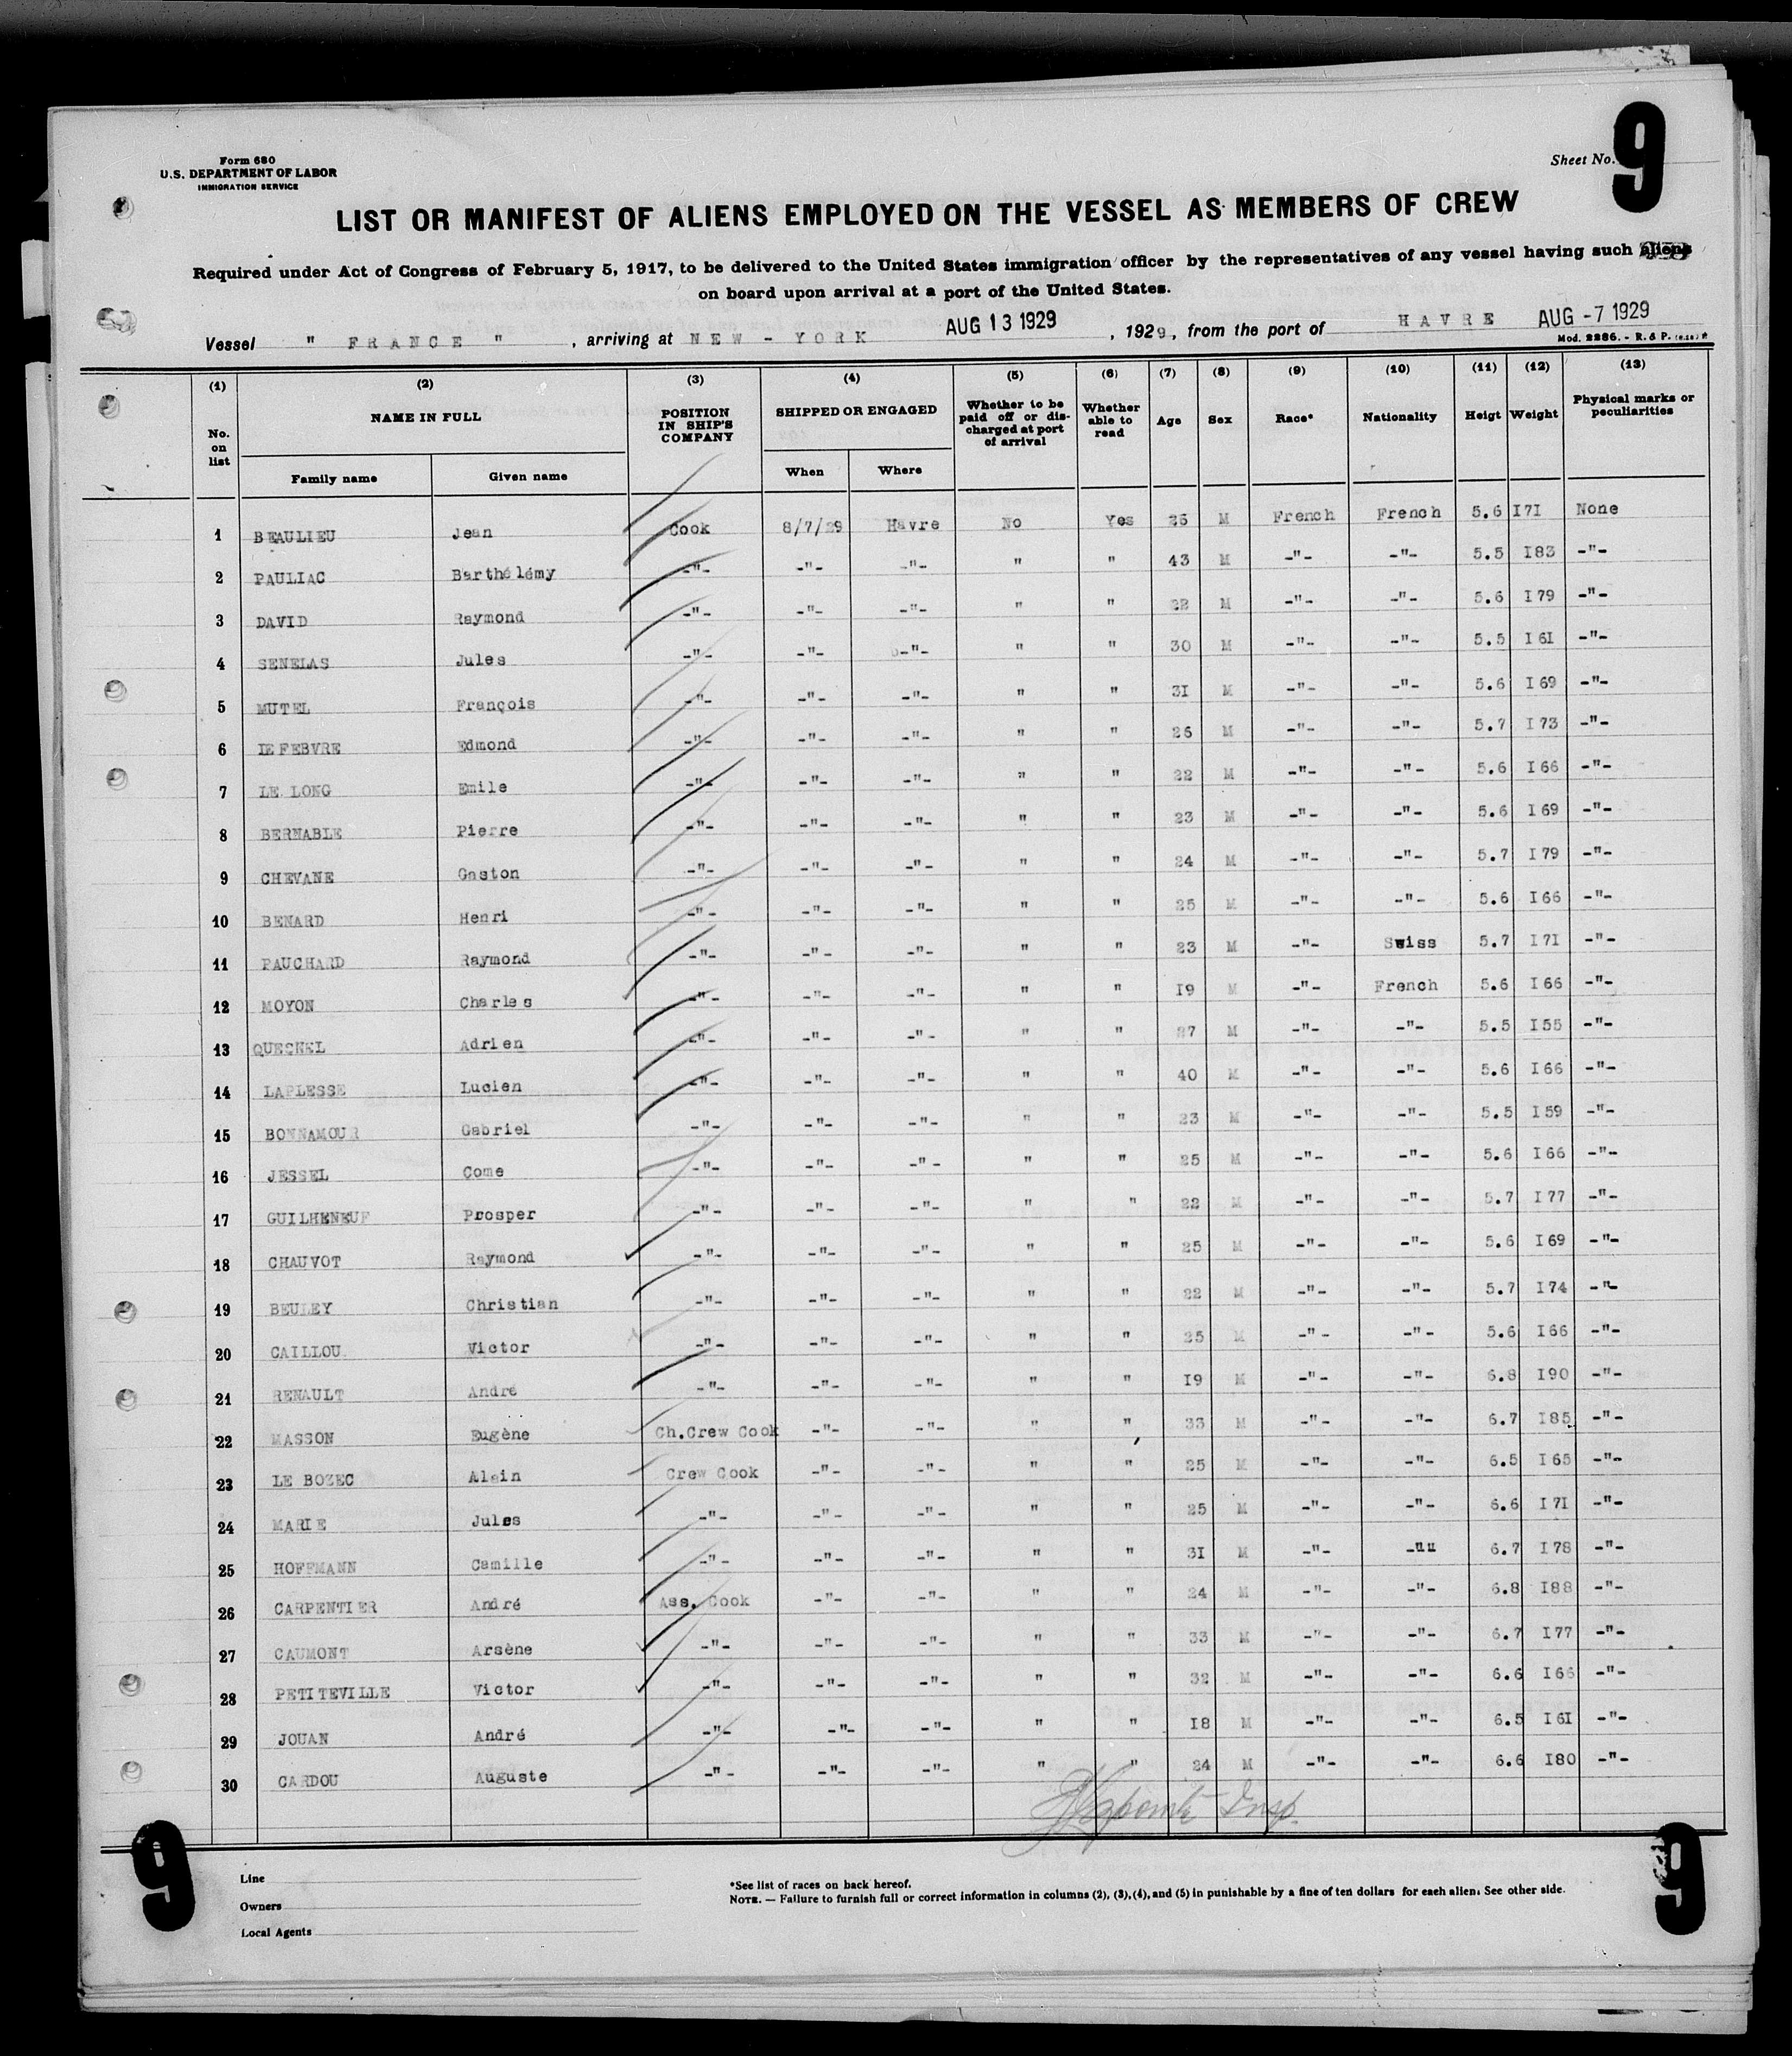 9
Form 680
U.S. DEPARTMENT OF LABOR
IMMIGRATION SERVICE
Sheet No.
LIST OR MANIFEST OF ALIENS EMPLOYED ON THE VESSEL AS MEMBERS OF CREW
Required under Act of Congress of February 5, 1917, to be delivered to the United States immigration officer by the representatives of any vessel having such aliens
on board upon arrival at a port of the United States.
Vessel " FRANCE " , arriving at NEW - YORK AUG 13 1929 , 1929, from the port of HAVRE AUG -7 1929
Mod. 2286. - R. & P.
(1) (2) (3) (4) (5) (6) (7) (8) (9) (10) (11) (12) (13)
No. on list NAME IN FULL POSITION IN SHIP'S COMPANY SHIPPED OR ENGAGED Whether to be paid off or discharged at port of arrival Whether able to read Age Sex Race* Nationality Heigt Weight Physical marks or peculiarities
Family name Given name When Where
1 BEAULIEU Jean Cook 8/7/29 Havre No Yes 26 M French French 5.6 I7I None
2 PAULIAC Barthélémy -"- -"- -"- " " 43 M -"- -"- 5.5 I83 -"-
3 DAVID Raymond -"- -"- -"- " " 22 M -"- -"- 5.6 I79 -"-
4 SENELAS Jules -"- -"- -"- " " 30 M -"- -"- 5.5 I6I -"-
5 MUTEL François -"- -"- -"- " " 3I M -"- -"- 5.6 I69 -"-
6 LEFEBVRE Edmond -"- -"- -"- " " 26 M -"- -"- 5.7 I73 -"-
7 LE LONG Emile -"- -"- -"- " " 22 M -"- -"- 5.6 I66 -"-
8 BERNABLE Pierre -"- -"- -"- " " 23 M -"- -"- 5.6 I69 -"-
9 CHEVANE Gaston -"- -"- -"- " " 24 M -"- -"- 5.7 I79 -"-
10 BENARD Henri -"- -"- -"- " " 25 M -"- -"- 5.6 I66 -"-
11 PAUCHARD Raymond -"- -"- -"- " " 23 M -"- Swiss 5.7 I7I -"-
12 MOYON Charles -"- -"- -"- " " I9 M -"- French 5.6 I66 -"-
13 QUESNEL Adrien -"- -"- -"- " " 27 M -"- -"- 5.5 I55 -"-
14 LAPLESSE Lucien -"- -"- -"- " " 40 M -"- -"- 5.6 I66 -"-
15 BONNAMOUR Gabriel -"- -"- -"- " " 23 M -"- -"- 5.5 I59 -"-
16 JESSEL Come -"- -"- -"- " " 25 M -"- -"- 5.6 I66 -"-
17 GUILHENEUF Prosper -"- -"- -"- " " 22 M -"- -"- 5.7 I77 -"-
18 CHAUVOT Raymond -"- -"- -"- " " 25 M -"- -"- 5.6 I69 -"-
19 BEULEY Christian -"- -"- -"- " " 22 M -"- -"- 5.7 I74 -"-
20 CAILLOU Victor -"- -"- -"- " " 25 M -"- -"- 5.6 I66 -"-
21 RENAULT André -"- -"- -"- " " I9 M -"- -"- 6.8 I90 -"-
22 MASSON Eugène Ch.Crew Cook -"- -"- " " 33 M -"- -"- 6.7 I85 -"-
23 LE BOZEC Alain Crew Cook -"- -"- " " 25 M -"- -"- 6.5 I65 -"-
24 MARIE Jules -"- -"- -"- " " 25 M -"- -"- 6.6 I7I -"-
25 HOFFMANN Camille -"- -"- -"- " " 3I M -"- -"" 6.7 I78 -"-
26 CARPENTIER André Ass. Cook -"- -"- " " 24 M -"- -"- 6.8 I88 -"-
27 CAUMONT Arsène -"- -"- -"- " " 33 M -"- -"- 6.7 I77 -"-
28 PETITEVILLE Victor -"- -"- -"- " " 32 M -"- -"- 6.6 I66 -"-
29 JOUAN André -"- -"- -"- " " I8 M -"- -"- 6.5 I6I -"-
30 CARDOU Auguste -"- -"- -"- " " 24 M -"- -"- 6.6 I80 -"-
Insp.
9
9
Line
Owners
Local Agents
*See list of races on back hereof.
NOTE. — Failure to furnish full or correct information in columns (2), (3), (4), and (5) in punishable by a fine of ten dollars for each alien. See other side.